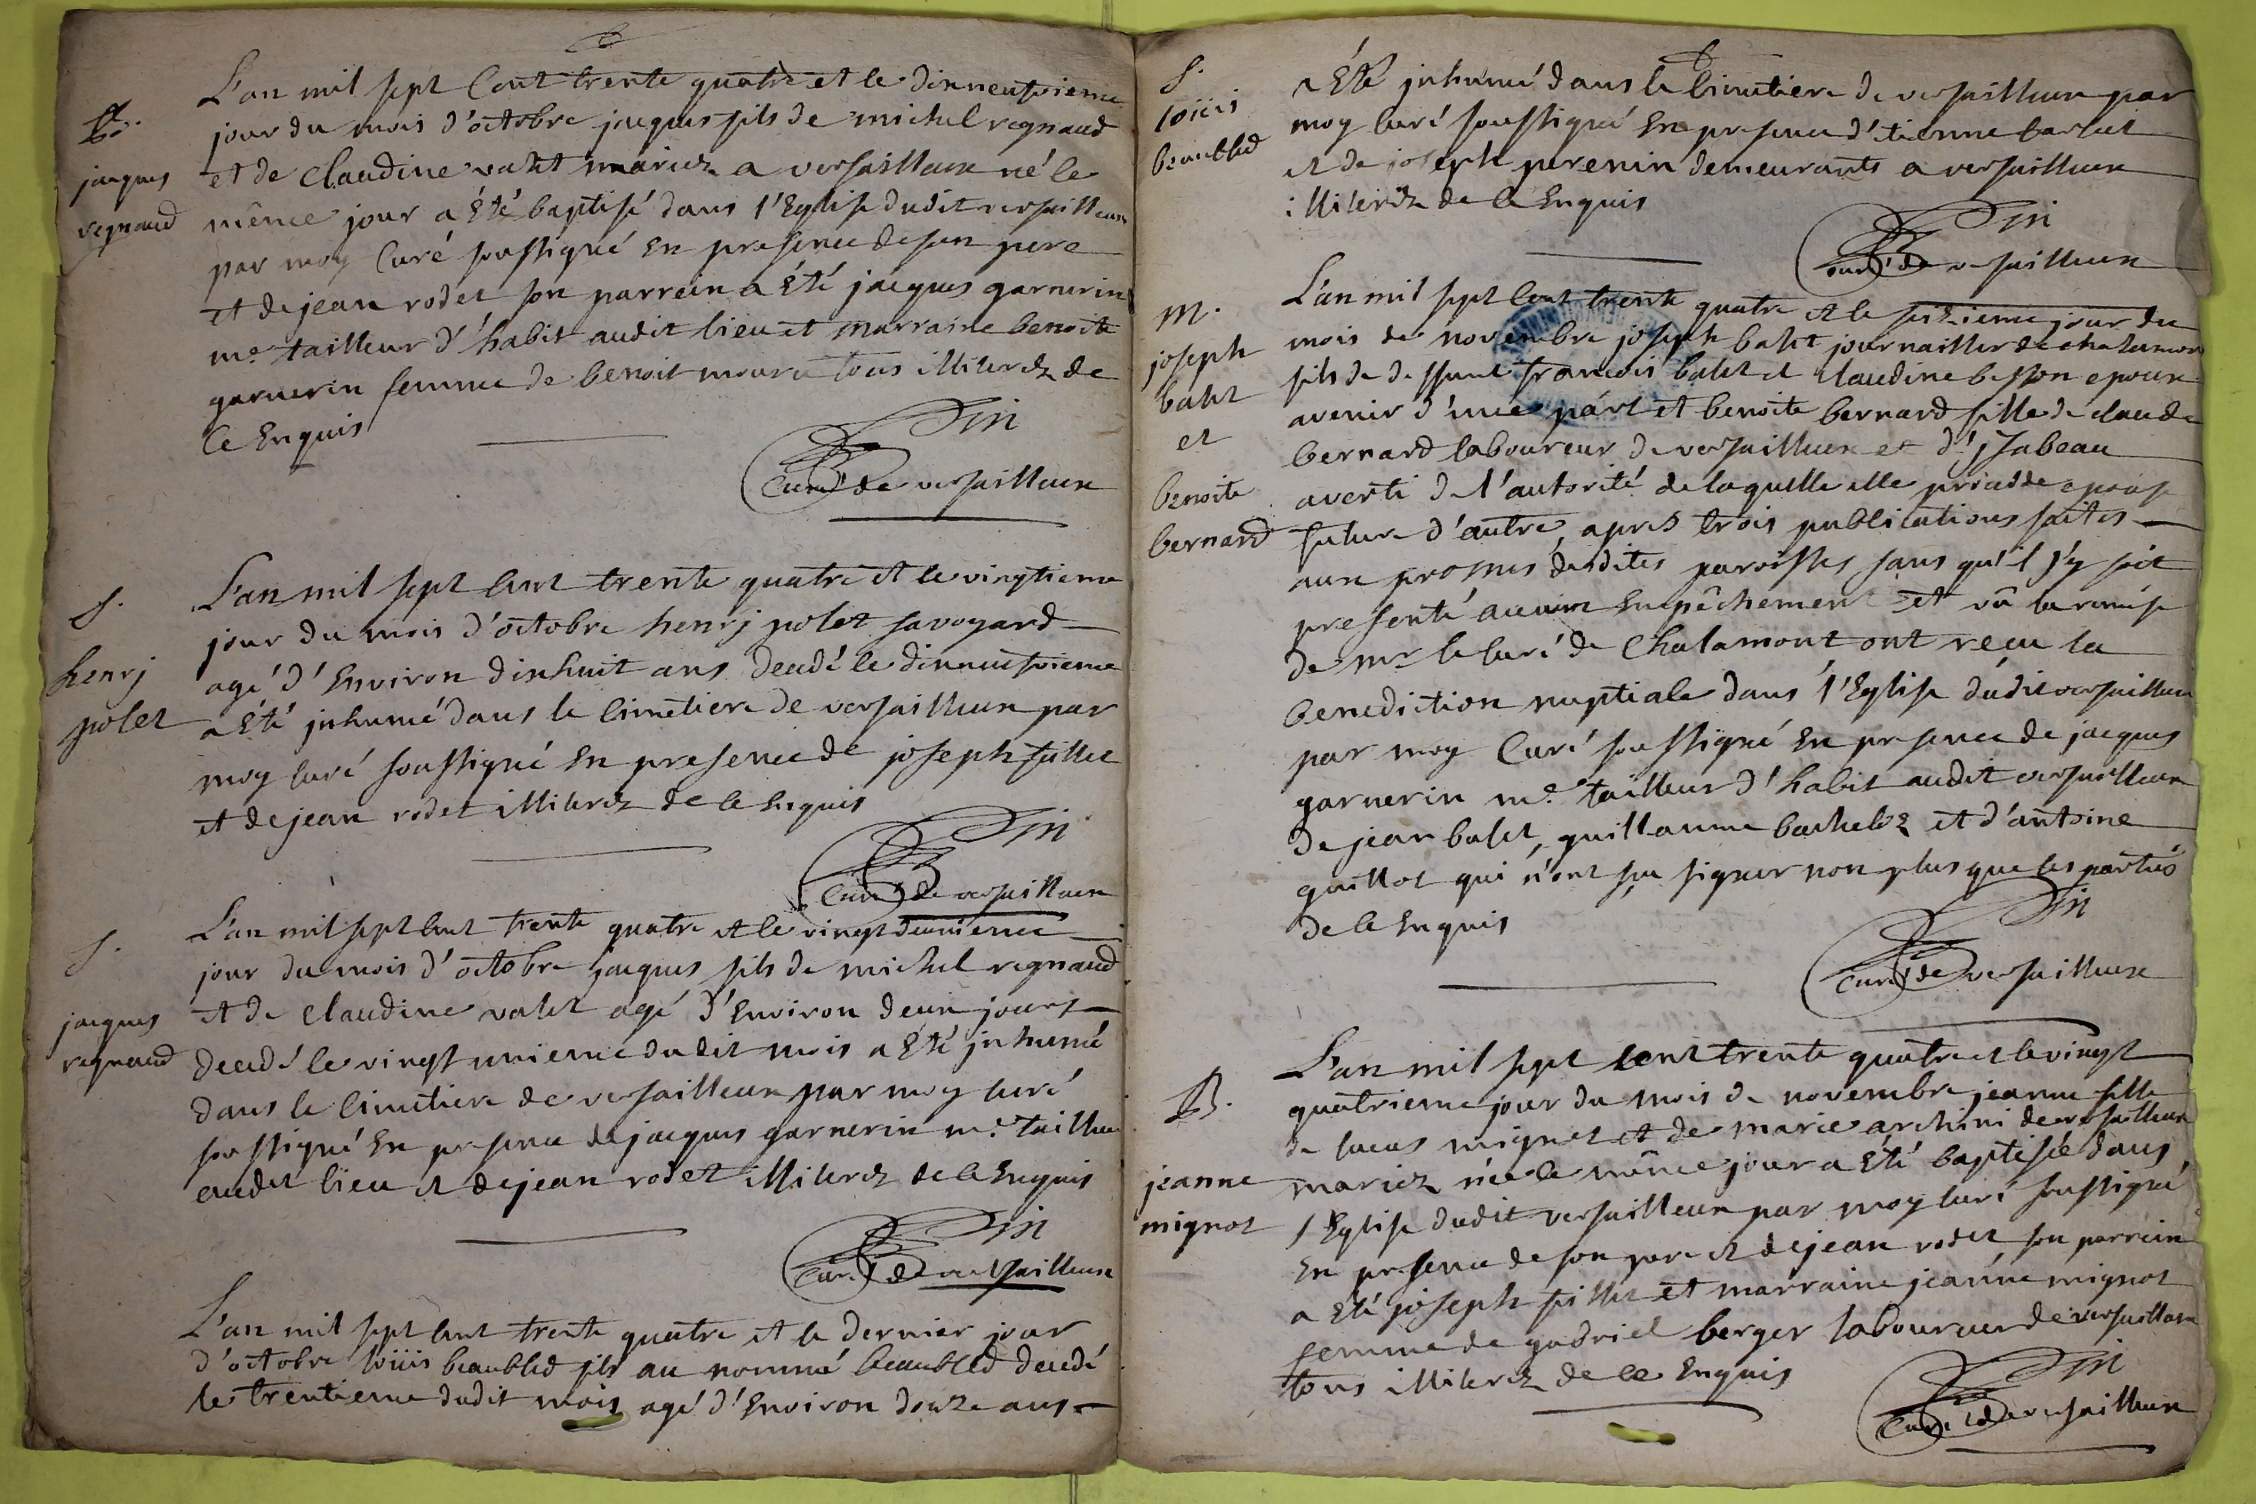 B.
jacques
regnaud
L'an mil sept Cent trente quatre et le dixneufvieme
jour du mois d'octobre jacques fils de michel regnaud
et de claudine valet mariez a versailleux né le
même jour a Eté baptisé dans l'Eglise dudit versailleux
par moy Curé soussigné En presence de son pere
et de jean rodet son parrein a Eté jacques garnerin
me. tailleur d'habit audit lieu et marraine benoite
garnerin femme de benoit tous illiterez de
ce Enquis
curé de versailleux
S.
henrj
polet
L'an mil sept Cent trente quatre et le vingtieme
jour du mois d'octobre henrj polet savoyard
agé d'Environ dixhuit ans decedé le dixneufvieme
a Eté jnhumé dans le cimetiere de versailleux par
moy curé soussigné En presence de joseph fillet
et de jean rodet illiterez de ce Enquis
Curé de versailleux
S.
jacques
regnaud
L'an mil sept cent trente quatre et le vingt deuxieme
jour du mois d'octobre jacques fils de michel regnaud
et de claudine valet agé d'Environ deux jours
decedé le vingt unieme dudit mois a Eté jnhumé
dans le cimetiere de versailleux par moy curé
soussigné En presence de jacques garnerin me. tailleur
audit lieu et de jean rodet illiterez de ce Enquis
Curé de versailleux
L'an mil sept cent trente quatre et le dernier jour
d'octobre loüis beaubled fils au nommé beaubled decedé
le trentieme dudit mois agé d'Environ douze ans
S.
loüis
beaubled
a Eté jnhumé dans le cimetiere de versailleux par
moy curé soussigné En presence d'etienne
et de joseph perenin demeurants a versailleux
illiterez de ce Enquis
curé de versailleux
M.
joseph
balet
et
benoite
bernard
L'an mil sept Cent trente quatre et le seizieme jour du
mois de novembre joseph balet journailler de chalamont
fils de deffunt francois balet et claudine besson epoux
avenir d'une part et benoite bernard fille de claude
bernard laboureur de versailleux et d'jsabeau
averti de l'autorité de laquelle elle procedde epouse
future d'autre, apres trois publications faites
aux prosnes desdites paroisses sans qu'il s'y soit
presenté aucun Empêchement et vû la remise
de Mr le curé de Chalamont ont recu la
benediction nuptiale dans l'Eglise dudit versailleux
par moy Curé soussigné En presence de jacques
garnerin me. tailleur d'habit audit versailleux
de jean balet, guillaume bachelez et d'antoine
guillot qui n'ont sçu signer non plus que les parties
de ce Enquis
Curé de versailleux
B.
jeanne
mignot
L'an mil sept cent trente quatre et le vingt
quatrieme jour du mois de novembre jeanne fille
de lucas mignot et de marie archini de versailleux
mariez née le même jour a Eté baptisée dans
l'Eglise dudit versailleux par moy curé soussigné
En presence de son pere et de jean rodet, son parrein
a Eté joseph fillet et marraine jeanne mignot
femme de gabriel berger laboureur de versailleux
tous illiterez de ce Enquis
Curé de versailleux